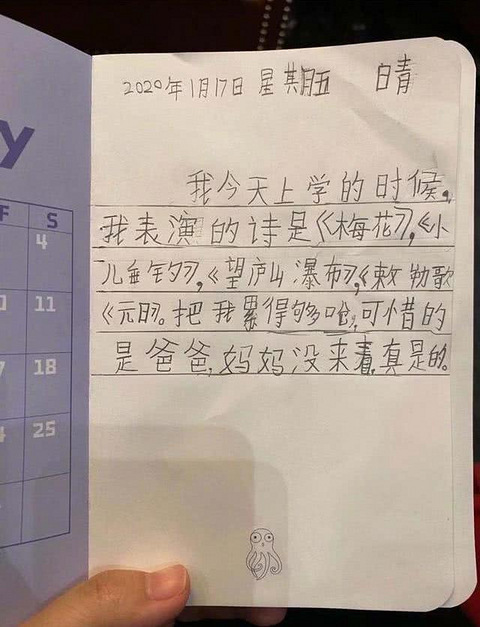 y
F S
4
11
18
25
2020年1月17日 星期五 晴
我今天上学的时候,
我表演的诗是《梅花》,《小
儿垂钓》,《望庐山瀑布》,《敕勒歌
《元日》。把我累得够呛,可惜的
是爸爸,妈妈没来看,真是的。